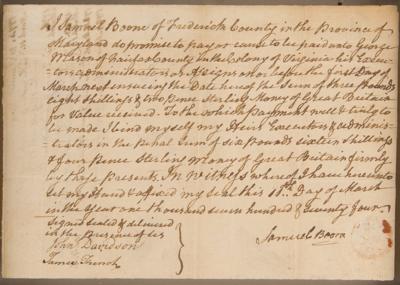 I Samuel Boone of Frederick County in the Province of
Maryland do promise to pay or cause to be paid unto George
Mason of Fairfax County in the Colony of Virginia his Execu-
tors, administrators or Assigns on or before the first Day of
March next ensuing the Date hereof the Sum of three Pounds
eight Shillings & two Pence Sterling Money of Great Britain
for Value received. To the which Payment well & truly to
be made I bind myself my Heirs Executors & adminis-
trators in the Penal Sum of six Pounds sixteen Shillings
& four Pence Sterling Money of Great Britain firmly
by these Presents. In Witness whereof I have hereunto
set my Hand & affixed my Seal this Day of March
in the Year one thousand seven hundred & seventy four.
Signed sealed & delivered
in the Presence of us
John Davidson
James French
Samuel Boone